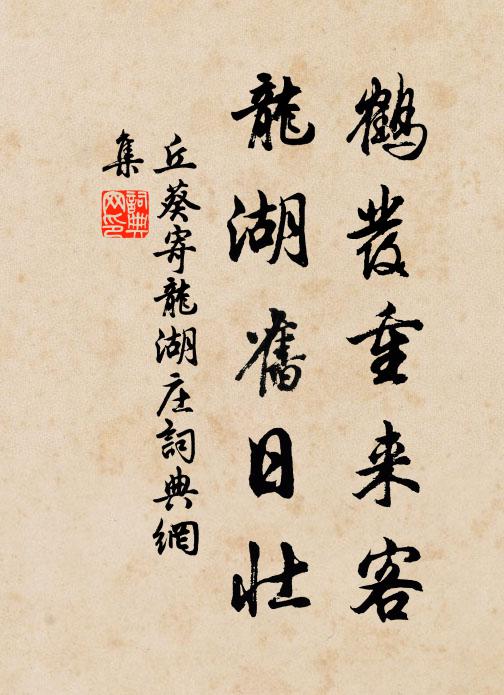 鶴發重来客
龍湖舊日壯
丘葵寄龍湖庄詞典網
集
詞典
网印